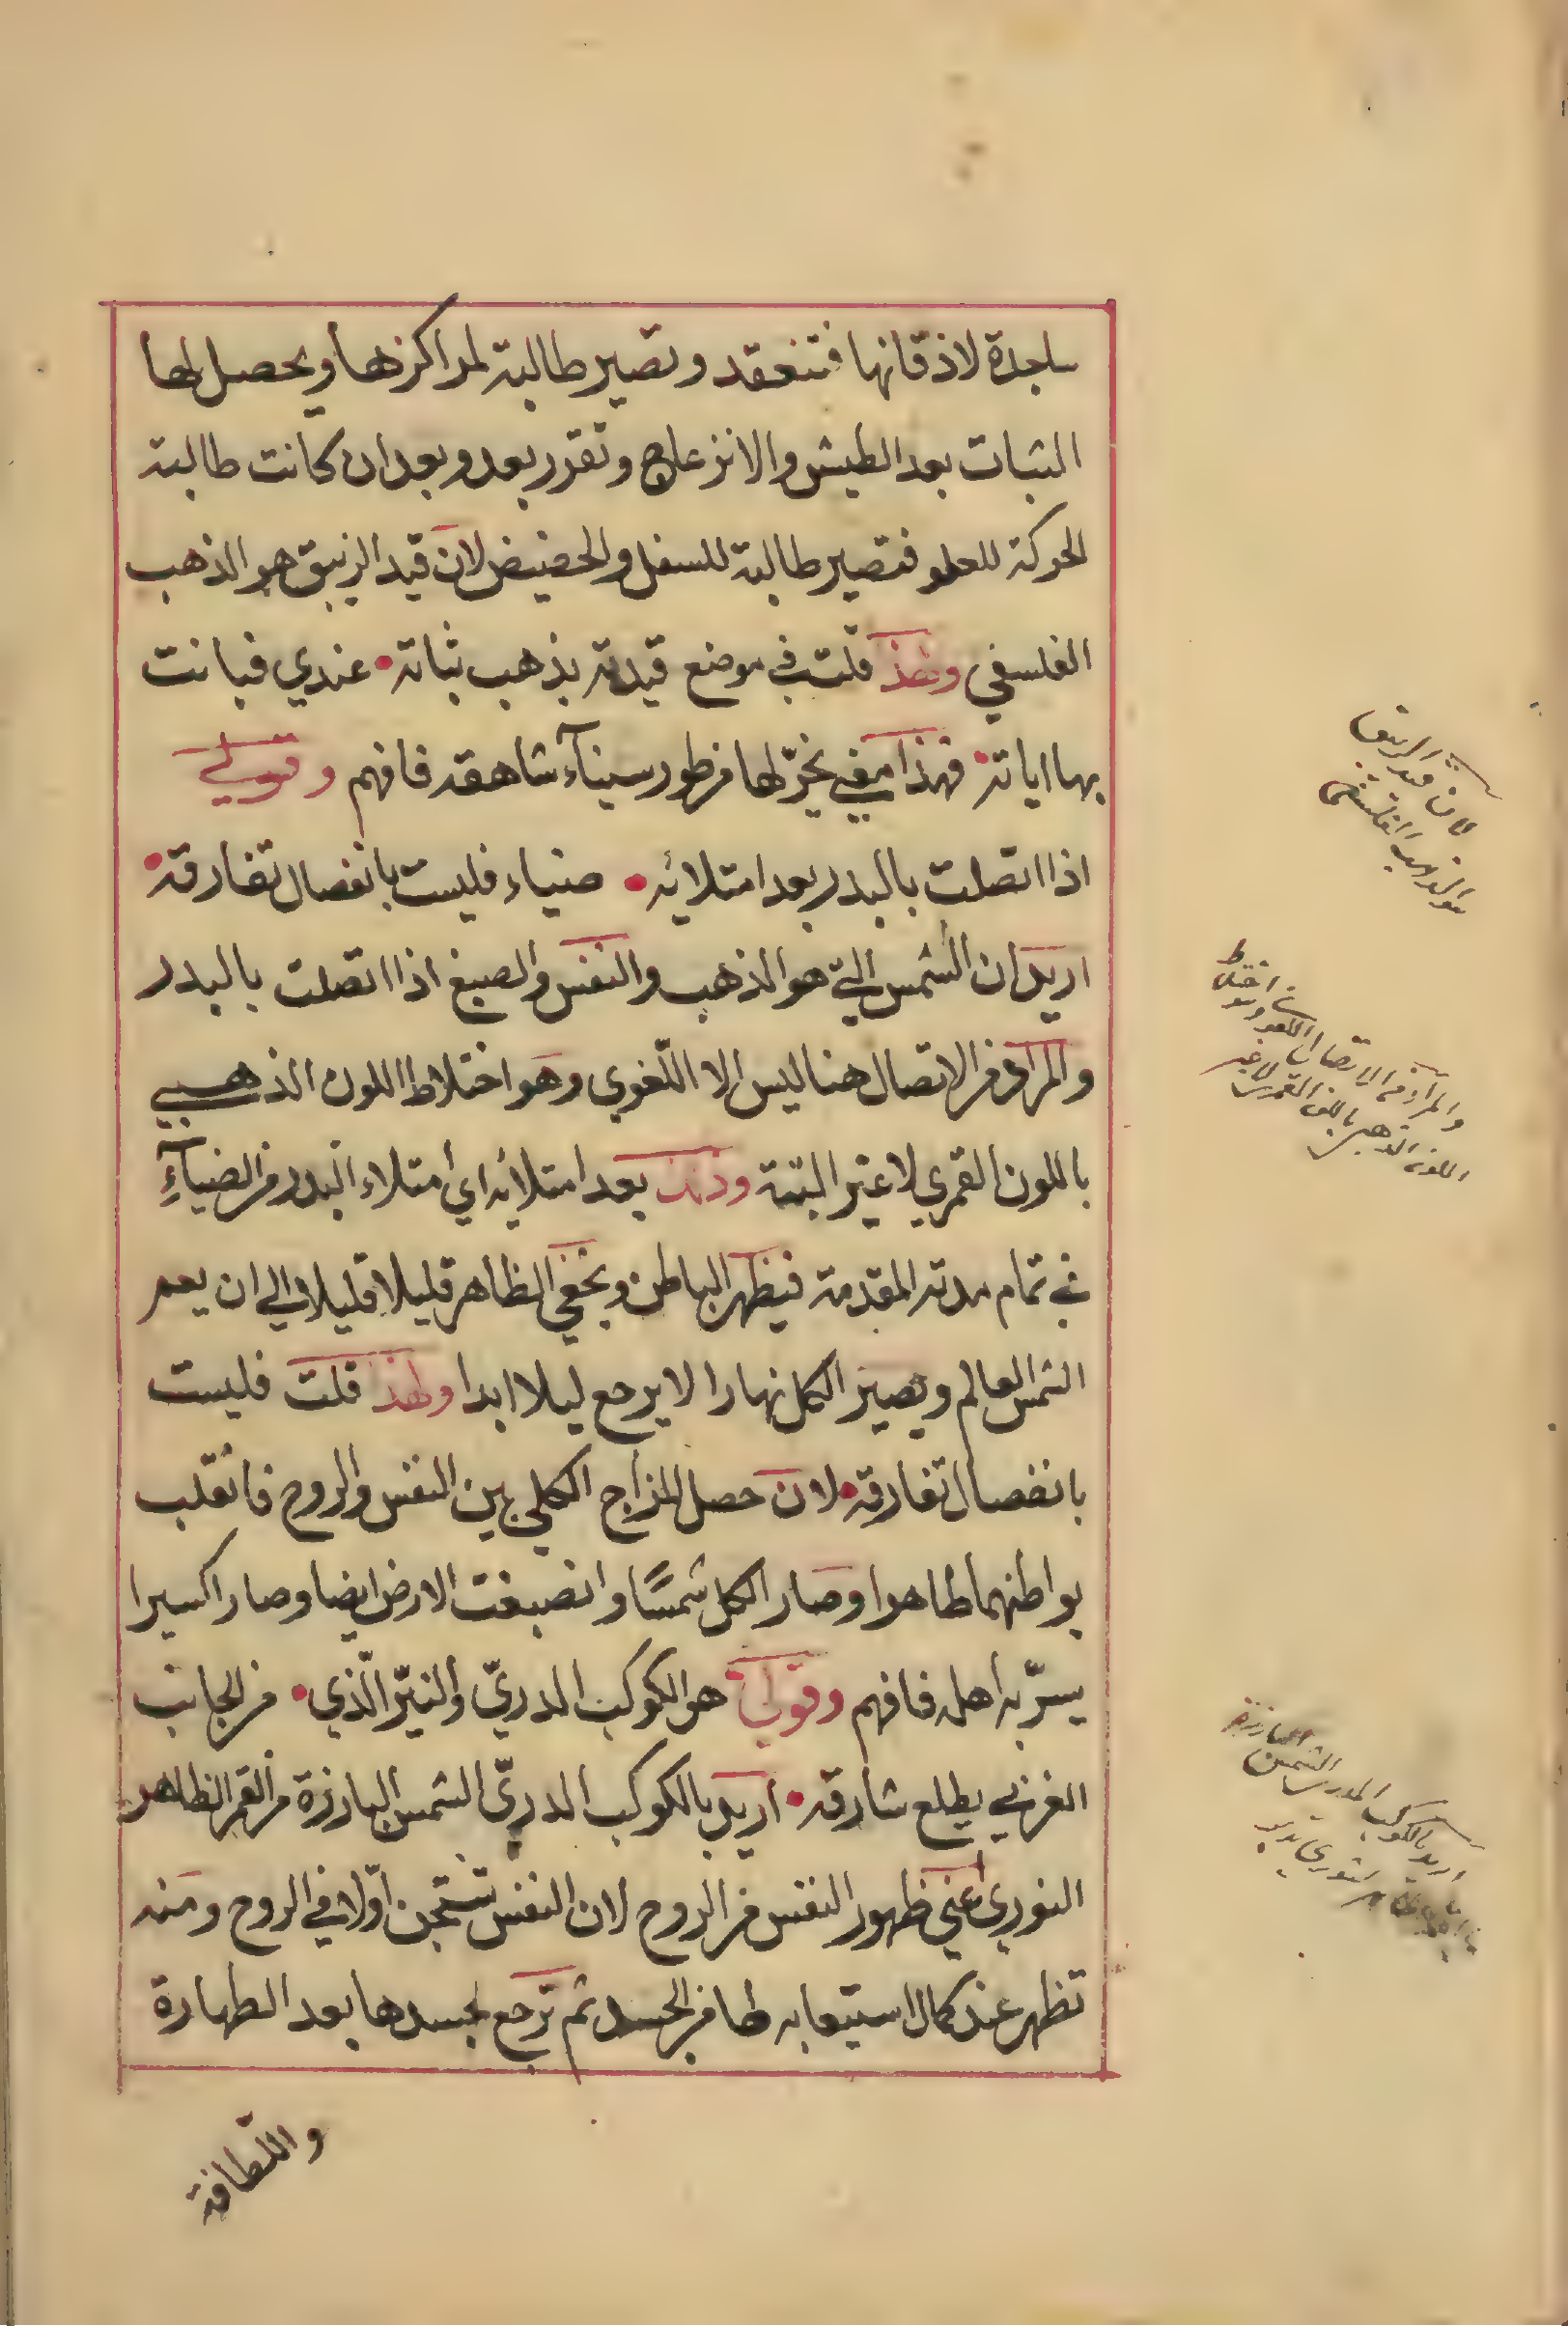 ساجدة لاذقانها فتنعقد وتصير طالبة لمراكزها ويحصل لها
الثبات بعد الطيش والانزعاج وتقرر بعد وبعد ان كانت طالبة
الحركة للعلو فتصير طالبة للسفل والحضيض لان قيد الزيبق هو الذهب
الفلسفي ولهذا قلت في موضع قيدته بذهب ثباته عندي فبانت
بها اياته فهذا معنى يخرّ لها من طور سينآء شاهقه فافهم وقولي
اذا اتصلت بالبدر بعد امتلائه ضياء فليست بانفصال تفارقه
اريد ان الشمس التي هو الذهب والنفس والصبغ اذا اتصلت بالبدر
والمراد من الاتصال هنا ليس الا اللّغوي وهو اختلاط اللون الذهبي
باللون القمري لا غير البتة وذلك بعد امتلائه اي امتلاء البدر من الضيآء
في تمام مدته المقدمة فيظهر الباطن ويخفي الظاهر قليلا قليلا والي ان يعم
الشمس العالم ويصير الكل نهارا لا يرجع ليلا ابدا ولهذا قلت فليست
بانفصال تفارقه لان حصل المزاج الكلي بين النفس والروح فانقلب
بواطنهما ظاهرا وصار الكل شمسًا وانصبغت الارض ايضا وصار اكسيرا
يسرّ به اهله فافهم وقولي هو الكوكب الدريّ والنيّر الّذي من الجانب
الغربي يطلع شارقه اريد بالكوكب الدريّ الشمس البارزة من القمر الظاهر
النوري اعني ظهور النفس من الروح لان النفس تستجن اوّلا في الروح ومنه
تظهر عند كمال استيعابه لها من الجسد ثم ترجع لجسدها بعد الطهارة
واللطافة
لان قيد الزيبق
هو الذهب الفلسفي
والمراد من الاتصال اللغوي وهو اختلاط
اللون الذهبي باللون القمري لا غير
اريد بالكوكب الدري الشمس البارزة